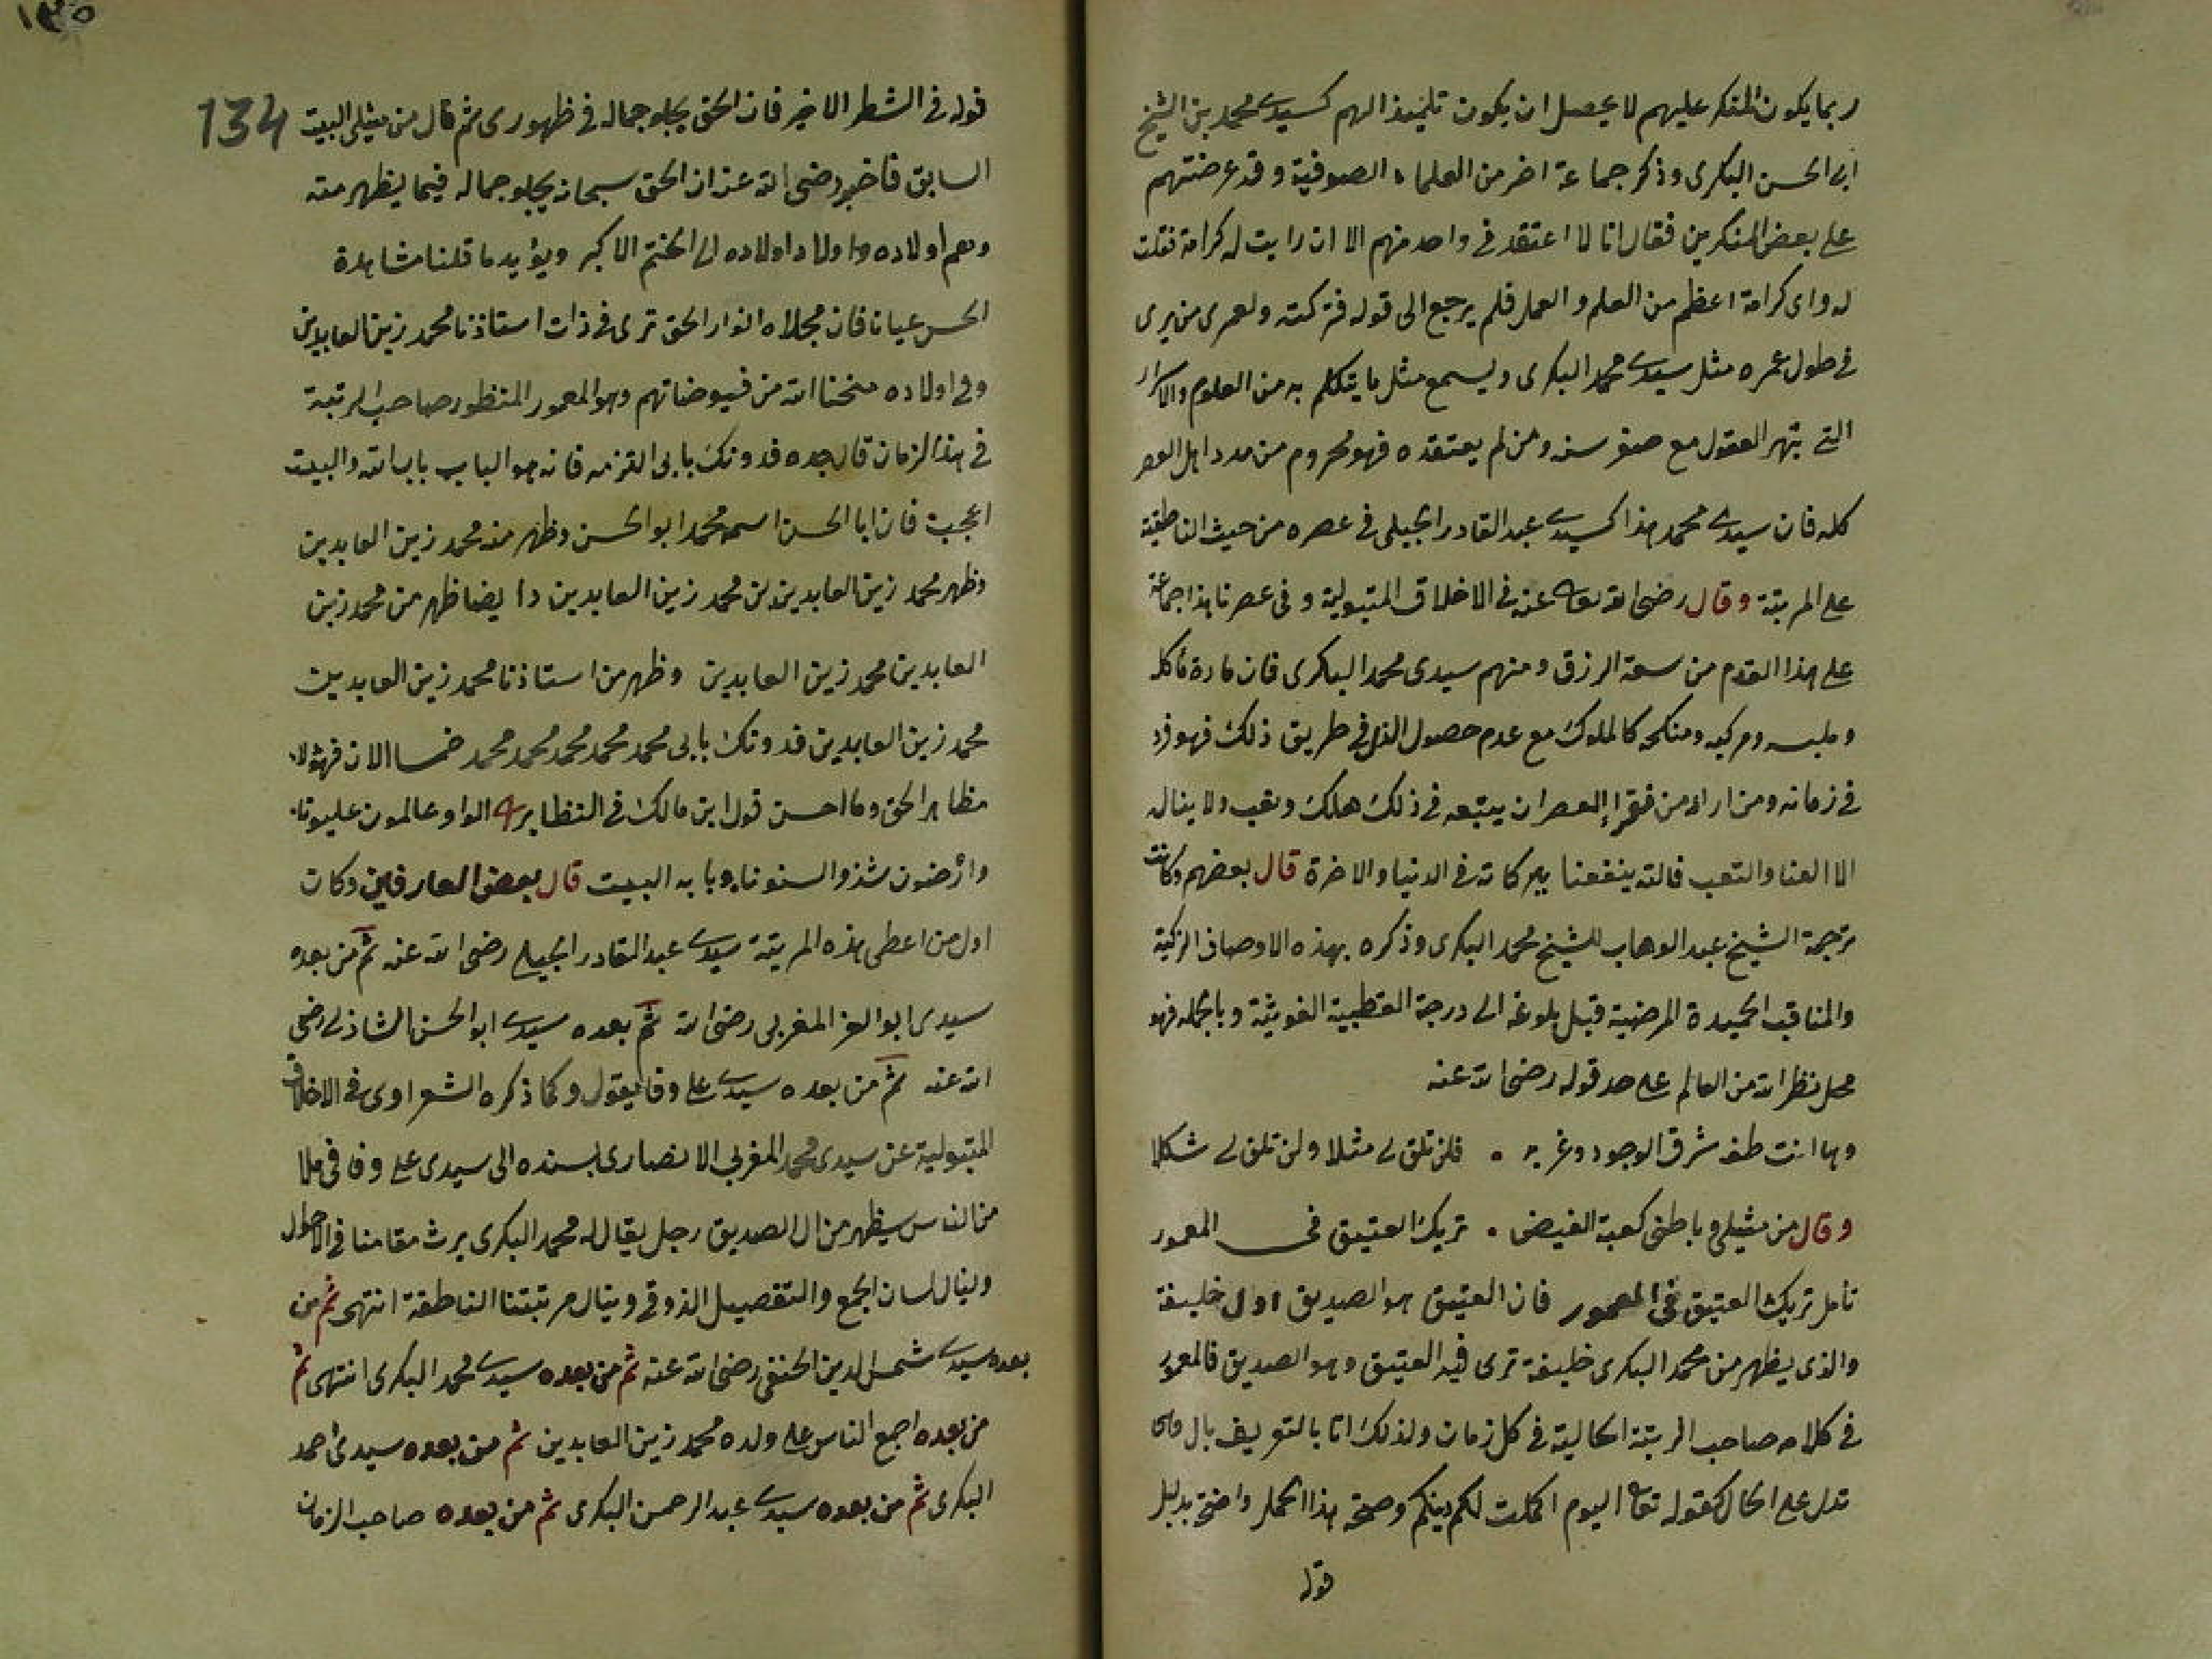 ربما يكون المنكر عليهم لا يحصل ان يكون تلميذا لهم كسيدي محمد بن الشيخ
ابي الحسن البكرى وذكر جماعة اخر من العلماء الصوفية وقد عرضتهم
على بعض المنكرين فقال انا لا اعتقد في واحد منهم الا ان رايت له كرامة فقلت
له واى كرامة اعظم من العلم و العمل فلم يرجع الى قوله فتركته ولعمرى من يرى
في طول عمره مثل سيدي محمد البكرى ويسمع مثل ما يتكلم به من العلوم والاسرار
التي تبهر العقول مع صغر سنه ومن لم يعتقده فهو محروم من مدد اهل العصر
كله فان سيدي محمد هذا كسيدي عبد القادر الجيلى في عصره من حيث الناطقية
على المرتبة وقال رضى الله تعالى عنه في الاخلاق المتبولية و في عصرنا هذا جماعة
على هذا القدم من سعة الرزق ومنهم سيدى محمد البكرى فان مأكله
وملبسه ومركبه ومنكحه كالملوك مع عدم حصول الذل في طريق ذلك فهو فرد
في زمانه ومن اراد من فقراء العصر ان يتبعه في ذلك هلك وتعب ولا يناله
الا العنا والتعب فالله ينفعنا ببركاته في الدنيا والاخرة قال بعضهم وكانت
ترجمة الشيخ عبد الوهاب للشيخ محمد البكرى وذكره بهذه الاوصاف الزكية
والمناقب الحميدة المرضية قبل بلوغه الى درجة القطبية الغوثية و بالجملة فهو
محل نظر الله من العالم على حد قوله رضى الله عنه
وها انت طف شرق الوجود وغربه . فلن تلق لي مثلا ولن تلق لي شكلا
وقال من مثيلي وباطني كعبة الفيض . تريك العتيق في المعمور
تامل تريك العتيق في المعمور فان العتيق هو الصديق اول خليفة
والذى يظهر من محمد البكرى خليفة ترى فيه العتيق وهو الصديق فالمعمور
في كلامه صاحب الرتبة الحالية في كل زمان ولذلك اتا بالتعريف بال
تدل على الحال كقوله تعالى اليوم اكملت لكم دينكم وصحة هذا الحمل واضحة بدليل
قوله
١٣٥
134
قوله في الشطر الاخير فان الحق يجلو جماله في ظهورى ثم قال من مثيلى البيت
السابق فاخبر رضى الله عنه ان الحق سبحانه يجلو جماله فيما يظهر منه
وهم اولاده واولاد اولاده الى الختم الاكبر ويؤيد ما قلنا مشاهدة
الحس عيانا فان مجلاه انوار الحق ترى في ذات استاذنا محمد زين العابدين
وفي اولاده منحنا الله من فيوضاتهم وهو المعمور المنظور صاحب الرتبة
في هذا الزمان قال جده فدونك بابى التزمه فانه هو الباب باب الله والبيت
اعجب فان ابا الحسن اسمه محمد ابو الحسن وظهر منه محمد زين العابدين
وظهر محمد زين العابدين من محمد زين العابدين وايضا ظهر من محمد زين
العابدين محمد زين العابدين وظهر من استاذنا محمد زين العابدين
محمد زين العابدين فدونك بابى محمد محمد محمد محمد محمد خمسا الان فهؤلاء
مظاهر الحق وما احسن قول ابن مالك في النظاير الواو عالمون عليونا
وارضون شذ والسنونا وبابه البيت قال بعض العارفين وكان
اول من اعطى هذه المرتبة سيدي عبد القادر الجيلي رضى الله عنه ثم من بعده
سيدى ابو العز المغربى رضى الله ثم بعده سيدي ابو الحسن الشاذلي رضى
الله عنه ثم من بعده سيدي على وفا يقول وكما ذكره الشعراوى في الاخلاق
المتبولية عن سيدى محمد المغربي الانصارى بسنده الى سيدى على وفا في ملا
من الناس سيظهر من ال الصديق رجل يقال له محمد البكرى يرث مقامنا في الاحوال
وينال لسان الجمع والتفصيل الذوقي وينال مرتبتنا الناطقة انتهى ثم من
بعده سيدي شمس الدين الحنفي رضى الله عنه ثم من بعده سيدي محمد البكرى انتهى ثم
من بعده اجمع الناس على ولده محمد زين العابدين ثم من بعده سيدى احمد
البكرى ثم من بعده سيدي عبد الرحمن البكرى ثم من بعده صاحب الزمان